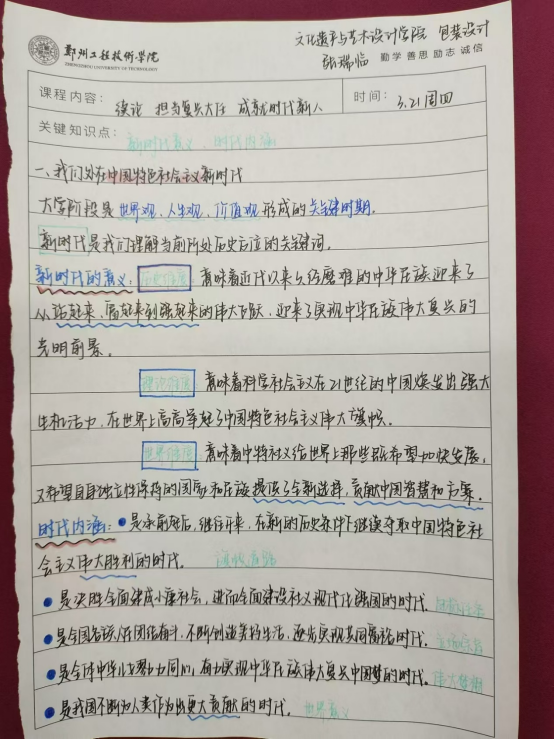 文化遗产与艺术设计学院 包装设计
郑州工程技术学院
ZHENGZHOU UNIVERSITY OF TECHNOLOGY
张瑞临 勤学 善思 励志 诚信
课程内容: 绪论 担当复兴大任 成就时代新人
时间: 3.21周四
关键知识点: 新时代意义、时代内涵
一、我们处在中国特色社会主义新时代
大学阶段是世界观、人生观、价值观形成的关键时期.
新时代是我们理解当前所处历史方位的关键词.
新时代的意义: 历史维度 意味着近代以来久经磨难的中华民族迎来了
从站起来、富起来到强起来的伟大飞跃, 迎来了实现中华民族伟大复兴的
光明前景.
理论维度 意味着科学社会主义在21世纪的中国焕发出强大
生机活力, 在世界上高高举起了中国特色社会主义伟大旗帜.
世界维度 意味着中特社义给世界上那些既希望加快发展,
又希望自身独立性保持的国家和民族提供了全新选择, 贡献中国智慧和方案.
时代内涵: ●是承前启后, 继往开来, 在新的历史条件下继续夺取中国特色社
会主义伟大胜利的时代.
●是决胜全面建成小康社会, 进而全面建设社义现代化强国的时代.
●是全国各族人民团结奋斗, 不断创造美好生活, 逐步实现共同富裕的时代.
●是全体中华儿女勠力同心, 奋力实现中华民族伟大复兴中国梦的时代.
●是我国不断为人类作为出更大贡献的时代. 世界意义